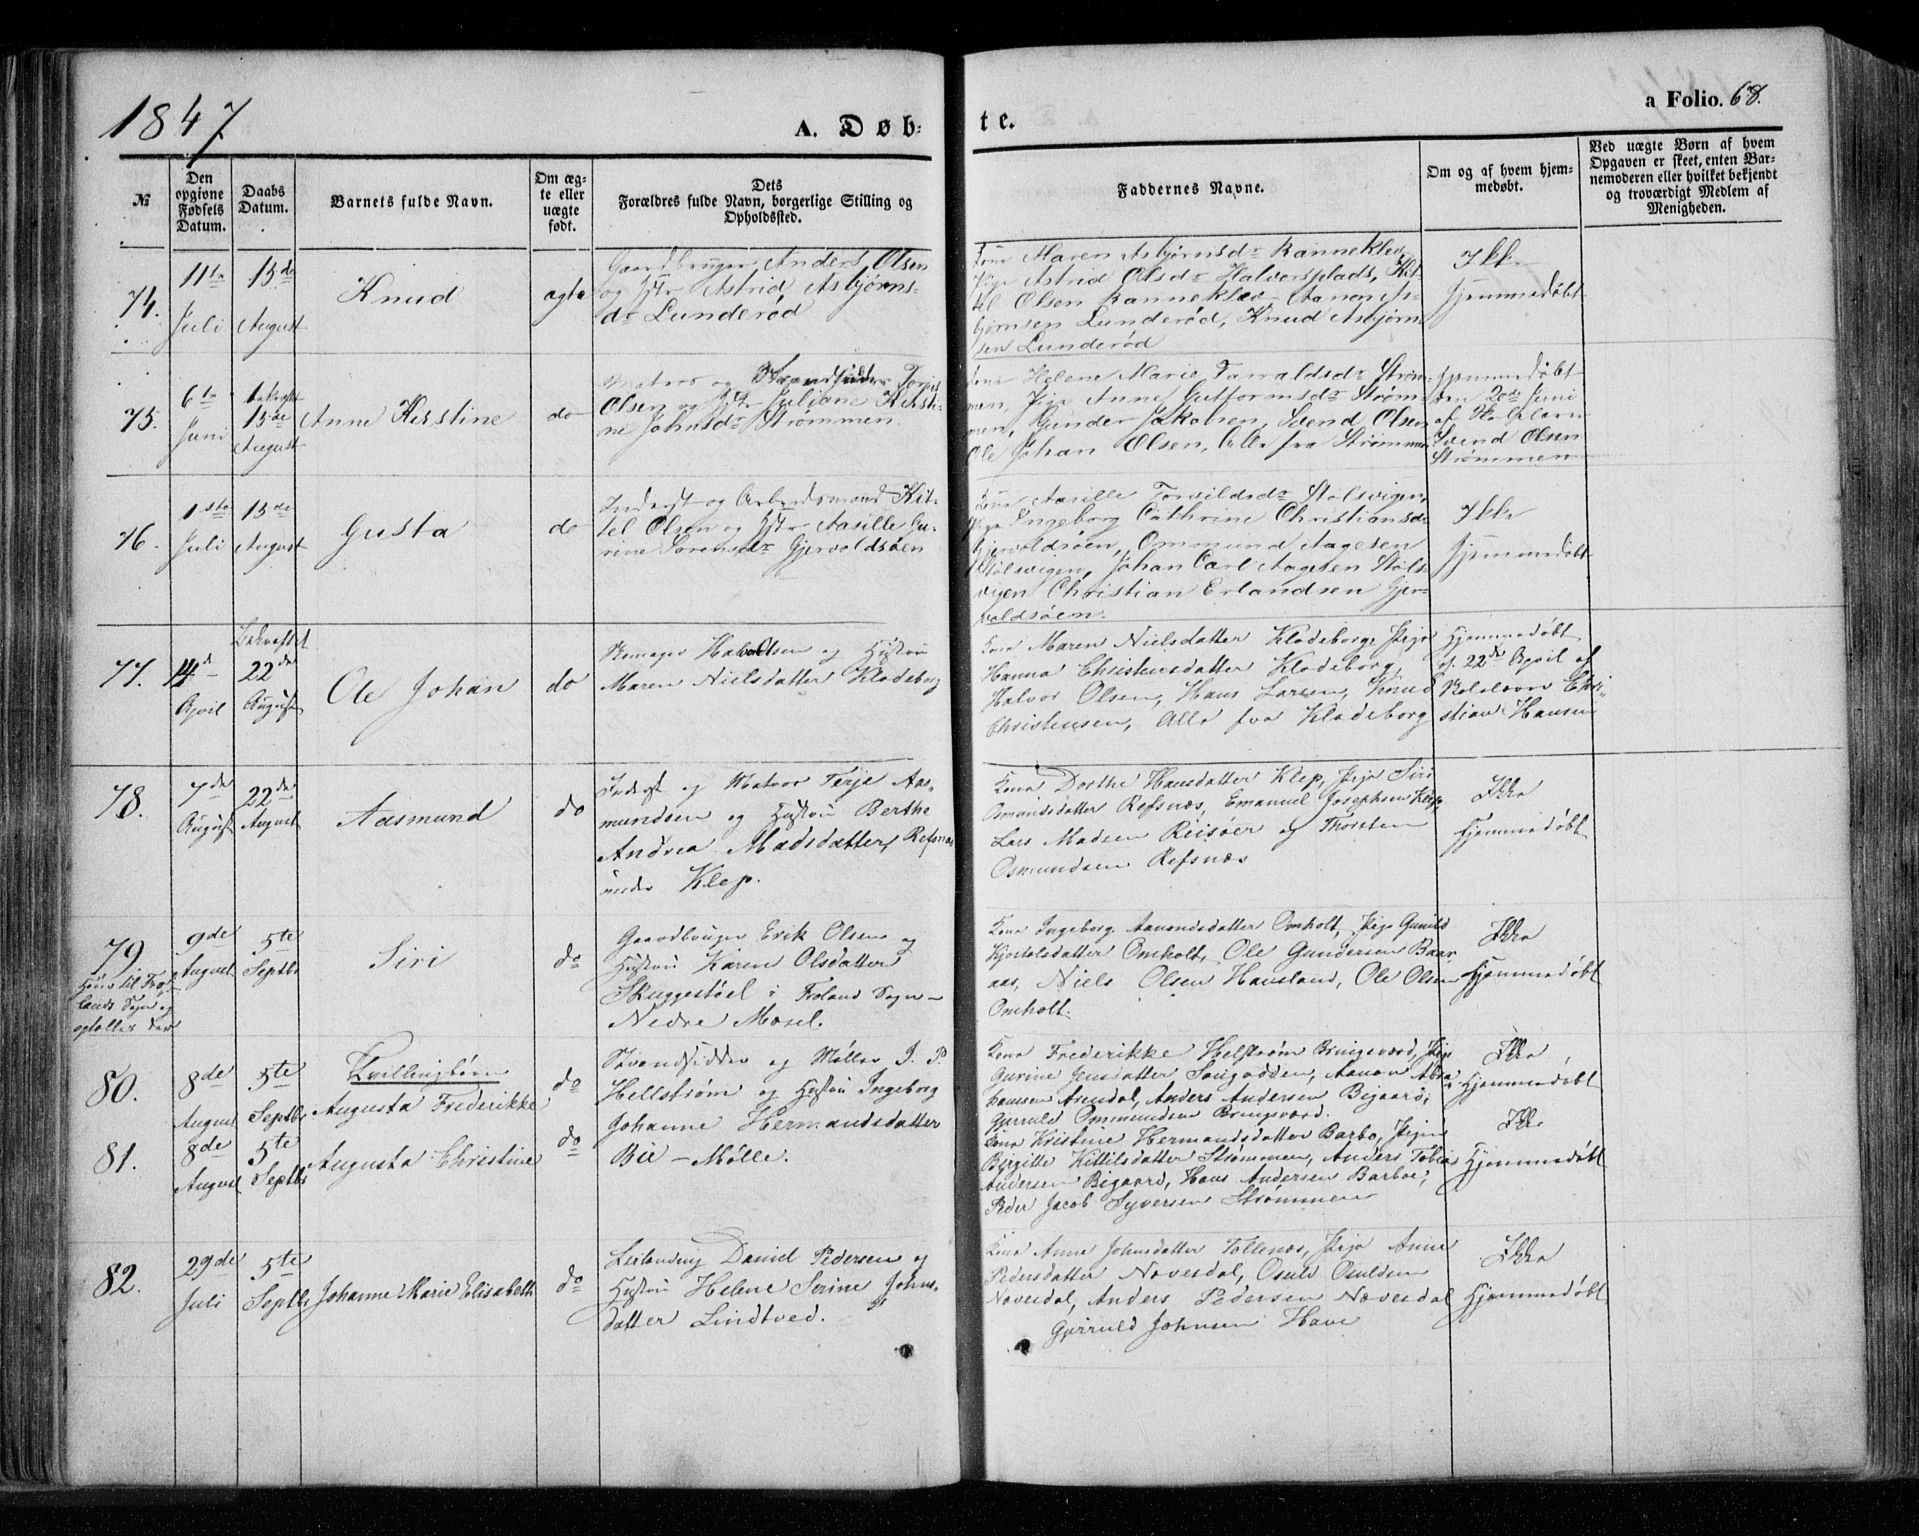 1847
A. Døb-
te.
a Folio. 68.
№
Den opgivne Fødsels Datum.
Daabs Datum.
Barnets fulde Navn.
Om ægte eller uægte født.
Dets Forældres fulde Navn, borgerlige Stilling og Opholdssted.
Faddernes Navne.
Om og af hvem hjemmedøbt.
Ved uægte Børn af hvem Opgaven er skeet, enten Barnemoderen eller hvilket bekjendt og troværdigt Medlem af Menigheden.
74.
11te Juli
15de August
Knud
ægte
Gaardbruger Anders Olsen
og Hstr Astrid Asbjørns-
dr Lunderød
Kone Maren Asbjørnsdr Ranneklev,
Pige Astrid Olsdr Halvorsplads, Kit-
tel Olsen Ranneklev Aanon As-
bjørnsen Lunderød, Knud Asbjørn-
sen Lunderød
Ikke
hjemmedøbt
75.
6te Juni
15de August
Anne Kirstine
do
Matros og Strandsidder
Olsen og Hstr Juliane Kirsti-
ne Johnsdr Strømmen.
Kone Helene Marie Tarraldsdr Strøm-
men, Pige Anne Guttormsdr Strøm-
men, Gunder Jakobsen, Svend Olsen
Ole Johan Olsen, Alle fra Strømmen
Hjemmedøbt
den 20de Juni
af
Svend Olsen
Strømmen
76.
1ste Juli
15de August
Gusta
do
Inderst og Arbeidsmand Kit-
tel Olsen og Hstr Aasille Gu-
rine Sørensdr Gjervoldsøen
Kone Aasille Torvildsdr Stølsvigen,
Pige Ingeborg Cathrine Christiansdr
Gjervoldsøen, Ommund Aagesen
Stølsvigen, Johan Carl Aagesen Støls-
vigen Christian Erlandsen Gjer-
voldsøen.
Ikke
hjemmedøbt
77.
14de April
Bekræftet
22de August
Ole Johan
do
Olsen og Hustru
Maren Nielsdatter Klodeborg
Kone Maren Nielsdatter Klodeborg, Pige
Hanna Christensdatter Klodeborg,
Halvor Olsen, Hans Larsen, Knud
Christensen, Alle fra Klodeborg
Hjemmedøbt
22de April af
Skolelærer Chri-
stian Hansen
78.
7de August
22de August
Aasmund
do
Inderst og Matros Terje Aas-
mundsen og Hustru Berthe
Andrea Madsdatter, Refsnæs
under Klep.
Kone Dorthe Hansdatter Klep, Pige Siri
Osmundsdatter Refsnæs, Emanuel Josephsen Klep
Lars Madsen Reisøer og Thorsten
Osmundsen Refsnæs
Ikke
Hjemmedøbt
79
Hører til Frø-
lands Sogn og
optælles der
9de August
5te Septbr
Siri
do
Gaardbruger Erik Olsen og
Hustru Karen Olsdatter
Skuggestøel i Froland Sogn -
Nedre Mosel.
Kone Ingeborg Aanonsdatter Omholt, Pige Gunild
Omholt, Ole Gundersen Baar-
aas, Niels Olsen Hausland, Ole Olsen
Omholt.
Ikke
Hjemmedøbt
80.
8de August
5te Septbr
Tvillingbørn
Augusta Frederikke
do
Strandsidder og Møller J. P.
Hellstrøm og Hustru Ingeborg
Johanne Hermandsdatter
Bie - Mølle.
Kone Frederikke Helstrøm Bringsværd, Pige
Gurine Jensdatter Songodden, Aanon Abra-
hamsen Arendal, Anders Andersen Bigaard,
Gjeruld Ommundsen Bringsværd.
Ikke
Hjemmedøbt
81.
8de August
5te Septbr
Augusta Christine
do
Kone Kristine Hermandsdatter Barbo, Pige
Birgitte Kittilsdatter Strømmen, Anders Tobias
Andersen Bigaard, Hans Andersen Barboe,
Peder Jacob Syversen Strømmen
Ikke
Hjemmedøbt
82.
29de Juli
5te Septbr
Johanne Marie Elisabeth
do
Leilænding Daniel Pedersen og
Hustru Helene Serine Johns-
datter Lindtved.
Kone Anne Johnsdatter Tollenæs, Pige Anne
Pedersdatter Novesdal, Osuld Osuldsen
Novesdal, Anders Pedersen Novesdal
Gjeruld Johnsen Have
Ikke
Hjemmedøbt